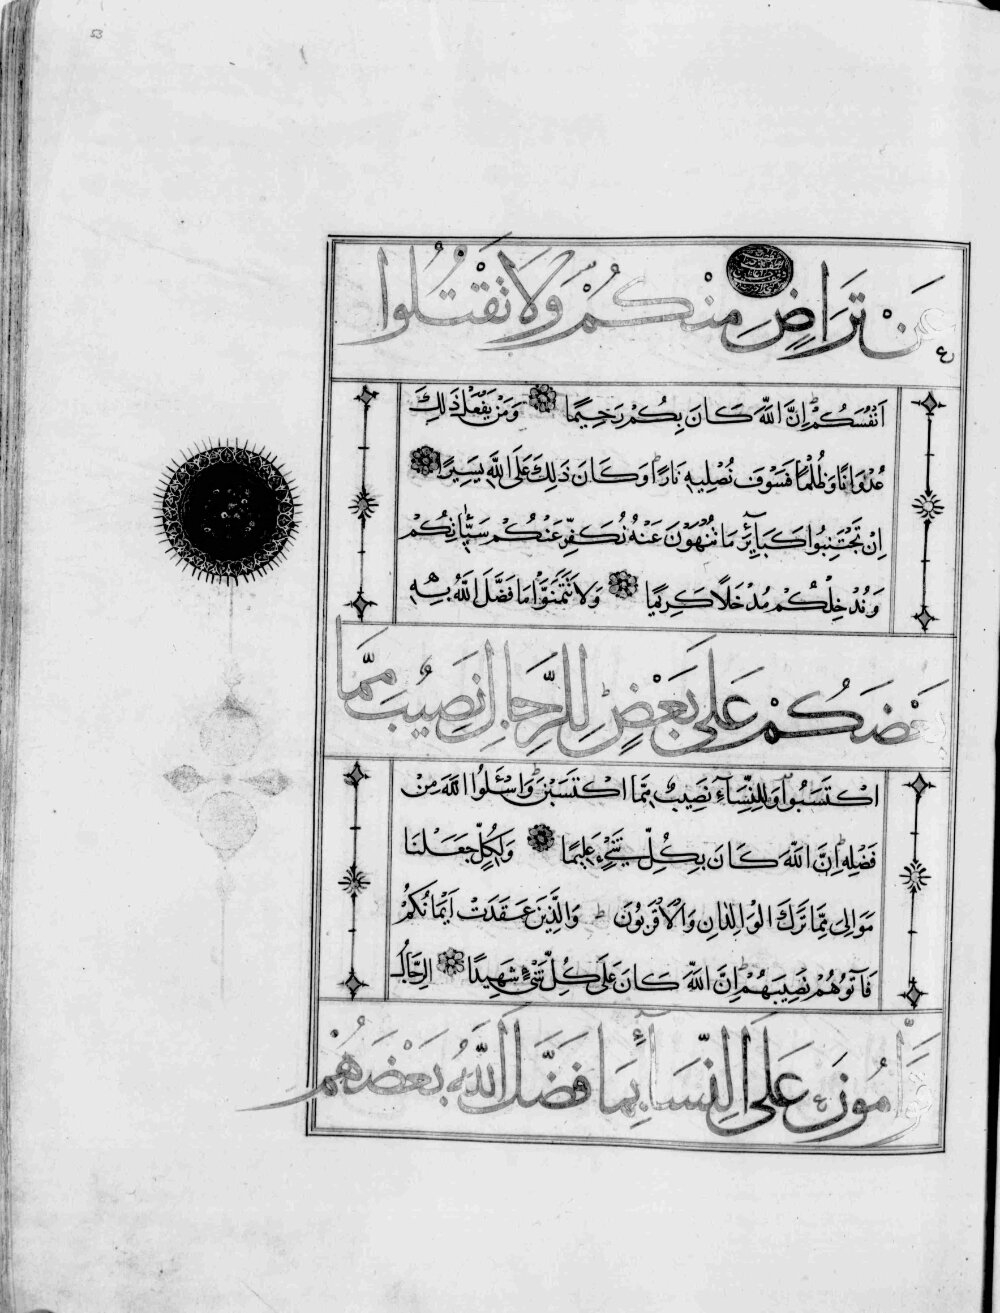 53
عَنْ تَرَاضٍ مِنْكُمْ وَلَا تَقْتُلُوا
اَنْفُسَكُمْ اِنَّ اللَّهَ كَانَ بِكُمْ رَحِيمًا وَمَنْ يَفْعَلْ ذَلِكَ
عُدْوَانًا وَظُلْمًا فَسَوْفَ نُصْلِيهِ نَارًا وَكَانَ ذَلِكَ عَلَى اللَّهِ يَسِيرًا
اِنْ تَجْتَنِبُوا كَبَآئِرَ مَا تُنْهَوْنَ عَنْهُ نُكَفِّرْ عَنْكُمْ سَيِّاٰتِكُمْ
وَنُدْخِلْكُمْ مُدْخَلًا كَرِيمًا وَلَا تَتَمَنَّوْا مَا فَضَّلَ اللَّهُ بِهِ
بَعْضَكُمْ عَلَى بَعْضٍ لِلرِّجَالِ نَصِيبٌ مِمَّا
اكْتَسَبُوا وَلِلنِّسَآءِ نَصِيبٌ مِمَّا اكْتَسَبْنَ وَاسْئَلُوا اللَّهَ مِنْ
فَضْلِهِ اِنَّ اللَّهَ كَانَ بِكُلِّ شَيْءٍ عَلِيمًا وَلِكُلٍّ جَعَلْنَا
مَوَالِىَ مِمَّا تَرَكَ الْوَالِدَانِ وَالْاَقْرَبُونَ وَالَّذِينَ عَقَدَتْ اَيْمَانُكُمْ
فَآتُوهُمْ نَصِيبَهُمْ اِنَّ اللَّهَ كَانَ عَلَى كُلِّ شَيْءٍ شَهِيدًا الرِّجَالُ
قَوَّامُونَ عَلَى النِّسَآءِ بِمَا فَضَّلَ اللَّهُ بَعْضَهُمْ